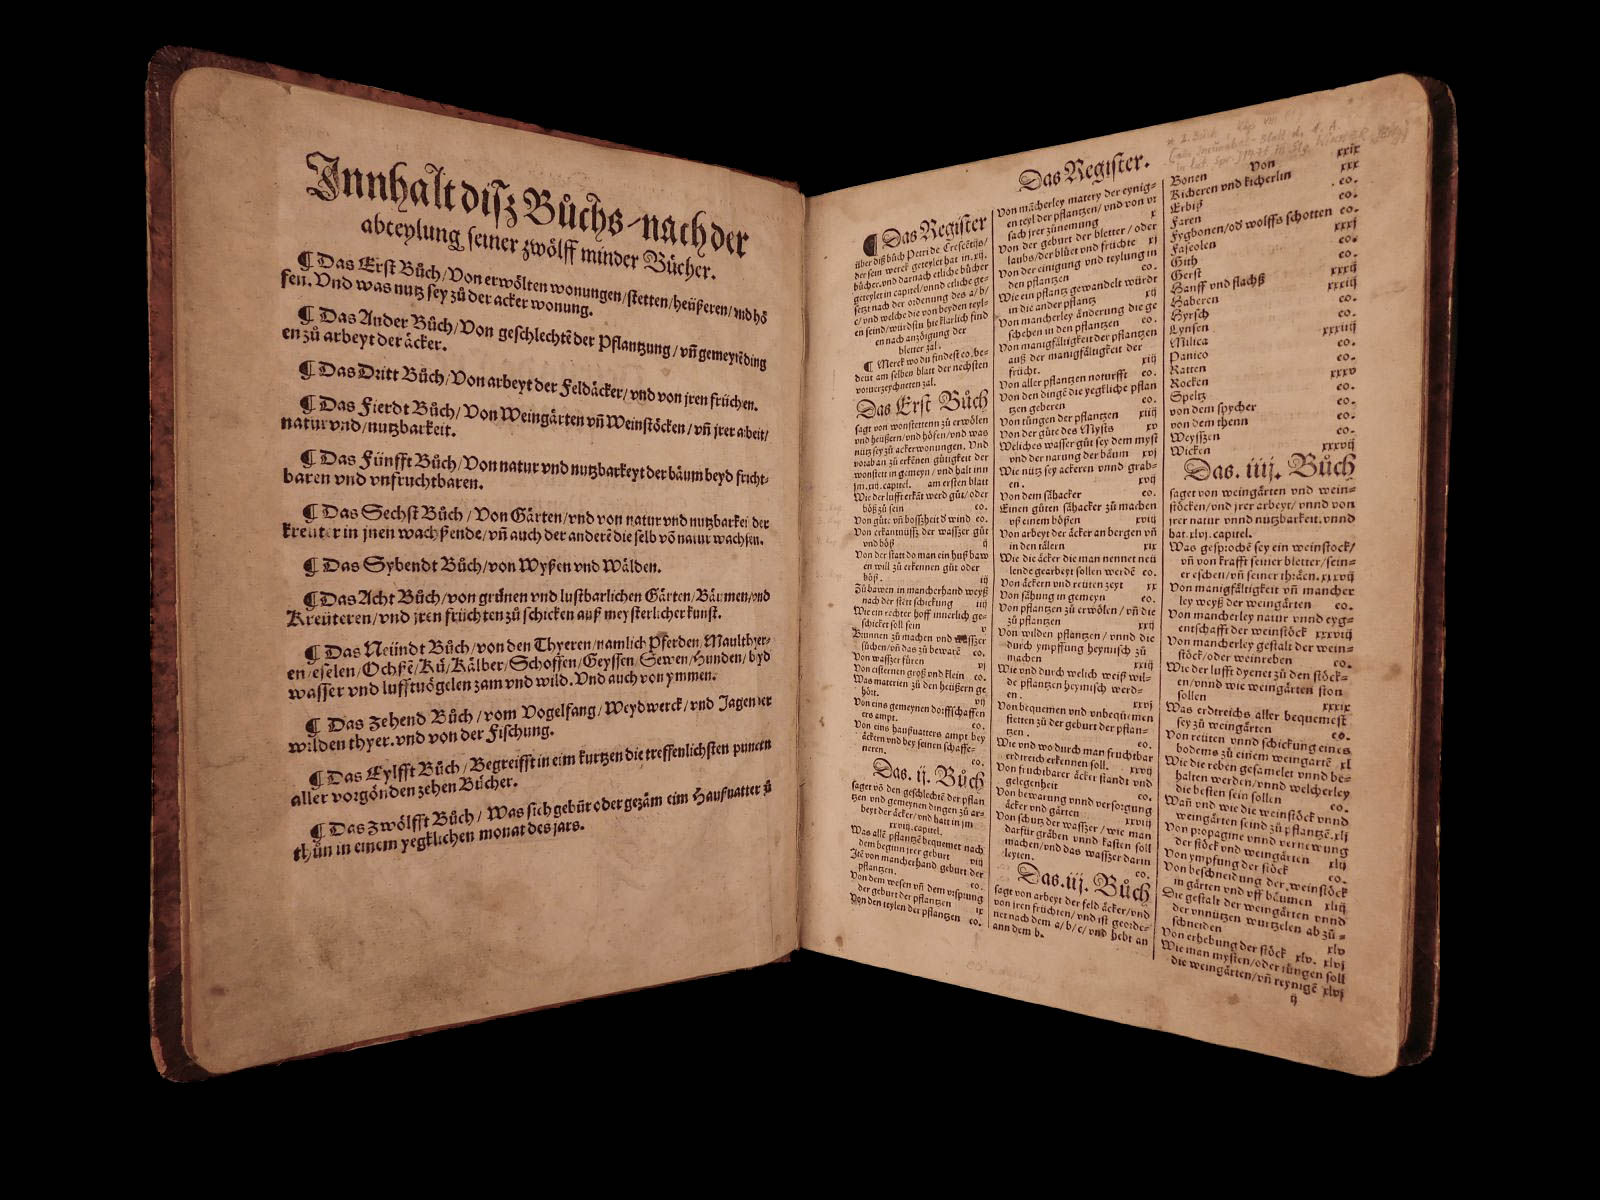 Innhalt diſz Bůchs nach der
abteylung ſeiner zwölff minder Bücher.
¶ Das Erſt Bůch/Von erwölten wonungen/ſtetten/heüßeren/vnd hö
fen. Vnd was nutz ſey zů der acker wonung.
¶ Das Ander Bůch/Von geſchlechtē der Pflantzung/vn̄ gemeynē ding
en zů arbeyt der äcker.
¶ Das Dritt Bůch/Von arbeyt der Feldäcker/vnd von jren früchen.
¶ Das Fierdt Bůch/Von Weingärten vn̄ Weinſtöcken/vn̄ jrer arbeit/
natur vnd/nutzbarkeit.
¶ Das Fünfft Bůch/Von natur vnd nutzbarkeyt der bäum beyd frucht-
baren vnd vnfruchtbaren.
¶ Das Sechſt Bůch/Von Gärten/vnd von natur vnd nutzbarkei der
kreuter in jnen wachßende/vn̄ auch der anderē die ſelb vō natur wachſen.
¶ Das Sybendt Bůch/von Wyßen vnd Wälden.
¶ Das Acht Bůch/von grůnen vnd luſtbarlichen Gärten/Bäumen/vnd
Kreüteren/vnd jren früchten zů ſchicken auß meyſterlicher kunſt.
¶ Das Neündt Bůch/von den Thyeren/namlich Pferden/Maulthyer-
en/eſelen/Ochßē/Ků/Kälber/Schoffen/Geyſſen/Sewen/Hunden/byd
waſſer vnd lufftuögelen zam vnd wild. Vnd auch von ymmen.
¶ Das Zehend Bůch/vom Vogelfang/Weydwerck/vnd Jagen der
wilden thyer. vnd von der Fiſchung.
¶ Das Eylfft Bůch/Begreifft in eim kurtzen die treffenlichſten puncten
aller vorgönden zehen Bücher.
¶ Das Zwölfft Bůch/Was ſich gebürt oder gezäm eim Haußuatter zů
thůn in einem yegklichen monat des jars.
Das Regiſter.
¶ Das Regiſter
über diß bůch Petri de Creſcētijs/
der ſein werck geteylet hat in .xij.
bücher. vnd darnach etliche bücher
geteylet in capitel/vnnd etliche ge-
ſetzt nach der ordenung des a/b/
c/vnd welche die von beyden teyl-
en ſeind/würdſtu hie klarlich find
en nach anzöigung der
bletter zal.
¶ Merck wo du findeſt co. be-
deut am ſelben blatt der nechſten
vorverzeychneten zal.
Das Erſt Bůch
ſagt von wonſtettenn zů erwölen
vnd heüßern/vnd höfen/vnd was
nütz ſey zů acker wonungen. Vnd
vorab an zů erkēnen gůtigkeit der
wonſtett in gemeyn/vnd halt inn
jm .xij. capitel. am erſten blatt
Wie der lufft erkāt werd gůt/oder
böß zů ſein co.
Von gůte vn̄ boſſzheit ð wind co.
Von erkantnüſſz der waſſzer gůt
vnd böß ij
Von der ſtatt do man ein huß baw
en will zů erkennen gůt oder
böß. iij
Zů bawen in mancherhand weyß
nach der ſtett ſchickung iiij
Wie ein rechter hoff innerlich ge-
ſchicket ſoll ſein v
Brunnen zů machen vnd waſſzer
ſůchen/vn̄ das zů bewarē co.
Von waſſzer fůren vj
Von ciſternen groß vnd klein co.
Was materien zů den heüßern ge
hört. vij
Von eins gemeynen dorffſchaffen
ers ampt. co.
Von eins haußuatters ampt bey
äckern vnd bey ſeinen ſchaffe-
neren. co.
Das. ij. Bůch
ſaget vō den geſchlechtē der pflan
tzen vnd gemeynen dingen zů ar-
beyt der äcker/vnd hatt in jm
xxviij. capitel.
Was allē pflantzē bequemet nach
dem beginn jrer geburt viij
Itē von mancherhand geburt der
pflantzen. co.
Von dem weſen vn̄ dem vrſprung
der geburt der pflantzen ix
Von den teylen der pflantzen co.
Von mācherley matery der eynig-
en teyl der pflantzen/vnd von vr
ſach jrer zůnemung x
Von der geburt der bletter/oder
laubs/der blůet vnd früchte xj
Von der einigung vnd teylung in
den pflantzen co.
Wie ein pflantz gewandelt würdt
in die ander pflantz xij
Von mancherley änderung die ge
ſchehen in den pflantzen co.
Von manigfältigkeit der pflantzen
auß der manigfältigkeit der
frücht. xiij
Von aller pflantzen noturfft co.
Von den dingē die yegkliche pflan
tzen geberen co.
Von tüngen der pflantzen xiiij
Von der gůte des Myſts xv
Welches waſſer gůt ſey dem myſt
vnd der narung der bäum xvj
Wie nütz ſey ackeren vnnd grab-
en. xvij
Von dem ſähacker co.
Einen gůten ſähacker zů machen
vß einem böſſen xviij
Von arbeyt der äcker an bergen vn̄
in den tälern xix
Wie die äcker die man nennet neü
lende gearbeyt ſollen werdē co.
Von äckern vnd reüten zeyt xx
Von ſähung in gemeyn co.
Von pflantzen zů erwölen/vn̄ die
zů pflantzen xxij
Von wilden pflantzen/vnnd die
durch ympffung heymiſch zů
machen xxiij
Wie vnd durch welich weiß wil-
de pflantzen heymiſch werd-
en. xxvj
Von bequemen vnd vnbequemen
ſtetten zů der geburt der pflan-
tzen. co.
Wie vnd wo durch man fruchtbar
erdtreich erkennen ſoll. xxvij
Von fruchtbarer äcker ſtandt vnd
gelegenheit co.
Von bewarung vnnd verſorgung
äcker vnd gärten xxviij
Von ſchutz der waſſzer/wie man
darfür gräben vnnd kaſten ſoll
machen/vnd das waſſzer darin
leyten. co.
Das. iij. Bůch
ſagt von arbeyt der feld äcker/vnd
von jren früchten/vnd iſt georde-
net nach dem a/b/c/vnd hebt an
ann dem b.
Von
Bonen xxix
Kicheren vnd kicherlin xxx
Erbiß co.
Faren co.
Fygbonen/od wolffs ſchotten co.
Faſeolen xxxj
Gith co.
Gerſt co.
Hanff vnd flachß xxxij
Haberen xxxiij
Hyrſch co.
Lynſen co.
Milica xxxiiij
Panico co.
Ratten co.
Rocken xxxv
Speltz co.
von dem ſpycher co.
von dem thenn co.
Weyſſzen co.
Wicken xxxvij
Das. iiij. Bůch
ſaget von weingärten vnd wein-
ſtöcken/vnd jrer arbeyt/vnnd von
jrer natur vnnd nutzbarkeit. vnnd
hat .xlvj. capitel.
Was geſprochē ſey ein weinſtock/
vn̄ von krafft ſeiner bletter/ſein-
er eſchen/vn̄ ſeiner thräen. xxxvij
Von manigfältigkeit vn̄ mancher
ley weyß der weingärten co.
Von mancherley natur vnnd eyg-
entſchafft der weinſtöck xxxviij
Von mancherley geſtalt der wein-
ſtöck/oder weinreben co.
Wie der lufft dyenet zů den ſtöck-
en/vnnd wie weingärten ſton
ſollen xxxix
Was erdtreichs aller bequemeſt
ſey zů weingärten co.
Von reüten vnnd ſchickung eines
bodems zů einem weingartē xl
Wie die reben geſamelet vnnd be-
halten werden/vnnd welcherley
die beſten ſein ſollen co.
Wan̄ vnd wie die weinſtöck vnnd
weingärten ſeind zů pflantzē. xlj
Von propagine vnnd vernewung
der ſtöck vnd weingärten xlij
Von ympfung der ſtöck co.
Von beſchneidung der weinſtöck
in gärten vnd vff bäumen xliij
Die geſtalt der weingärten vnnd
der vnnützen wurtzelen ab zů-
ſchneiden xlv
Von erhebung der ſtöck xlv. xlvj
Wie man myſten/oder tüngen ſoll
die weingärten/vn̄ reynigē xlvj
ij